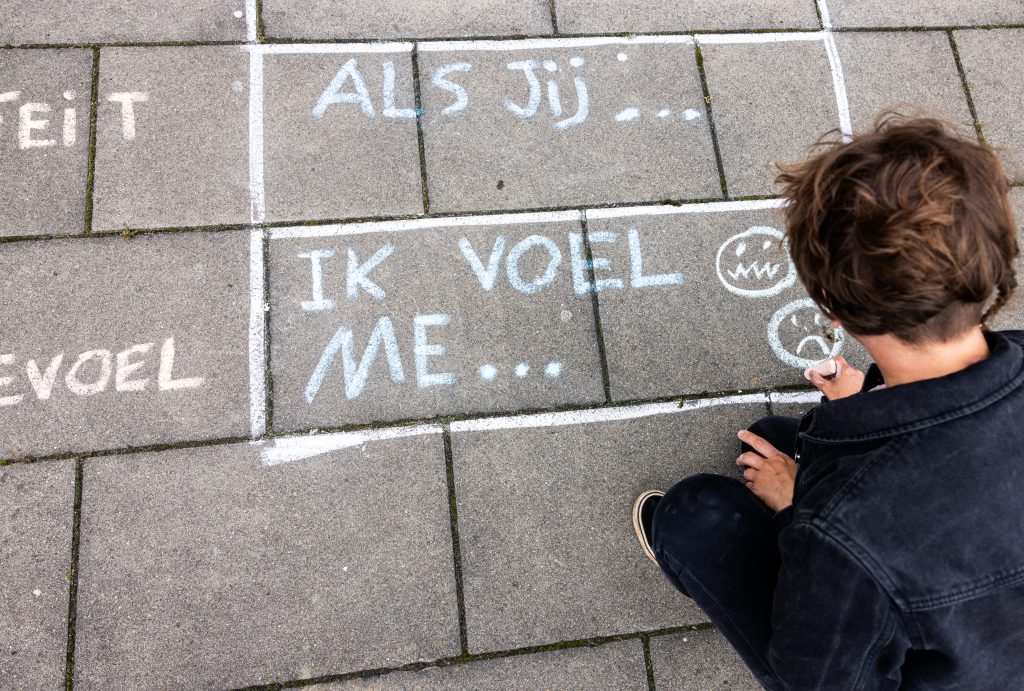 FEiT
ALS Jij...
IK VOEL
ME...
EVOEL